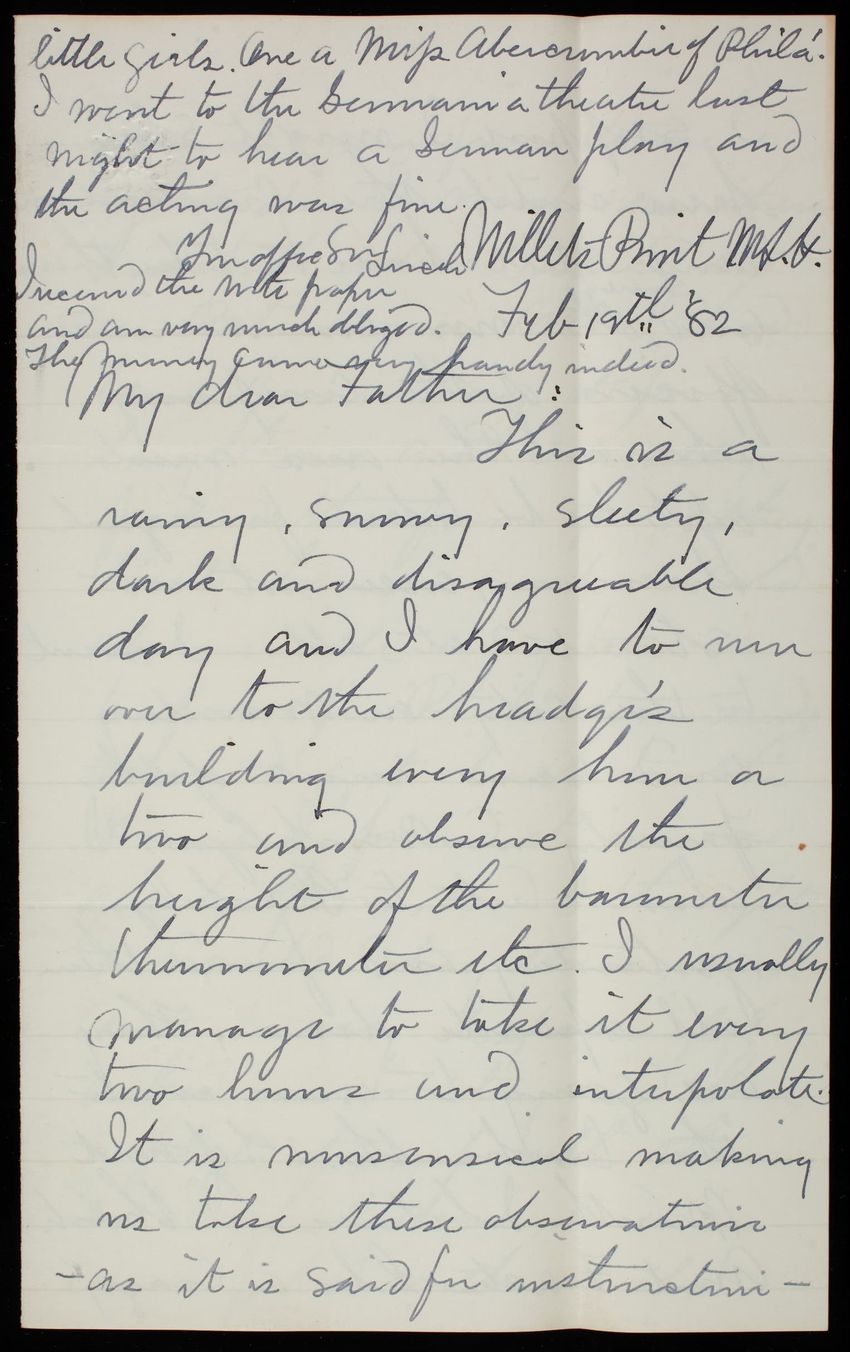 little girls. One a Miss Abercrombie of Phila'.
I went to the Germania theatre last
night to hear a German play and
the acting was fine.
Your affec Son
Lincoln
Willets Point N.Y.H.
Feb 19th '82
I received the note paper
and am very much obliged.
The money came very handy indeed.
My dear Father :
This is a
rainy, snowy, sleety,
dark and disagreeable
day and I have to run
over to the headqr's
building every hour or
two and observe the
height of the barometer
thermometer etc. I usually
manage to take it every
two hours and interpolate.
It is nonsensical making
us take these observations
- as it is said for instruction -